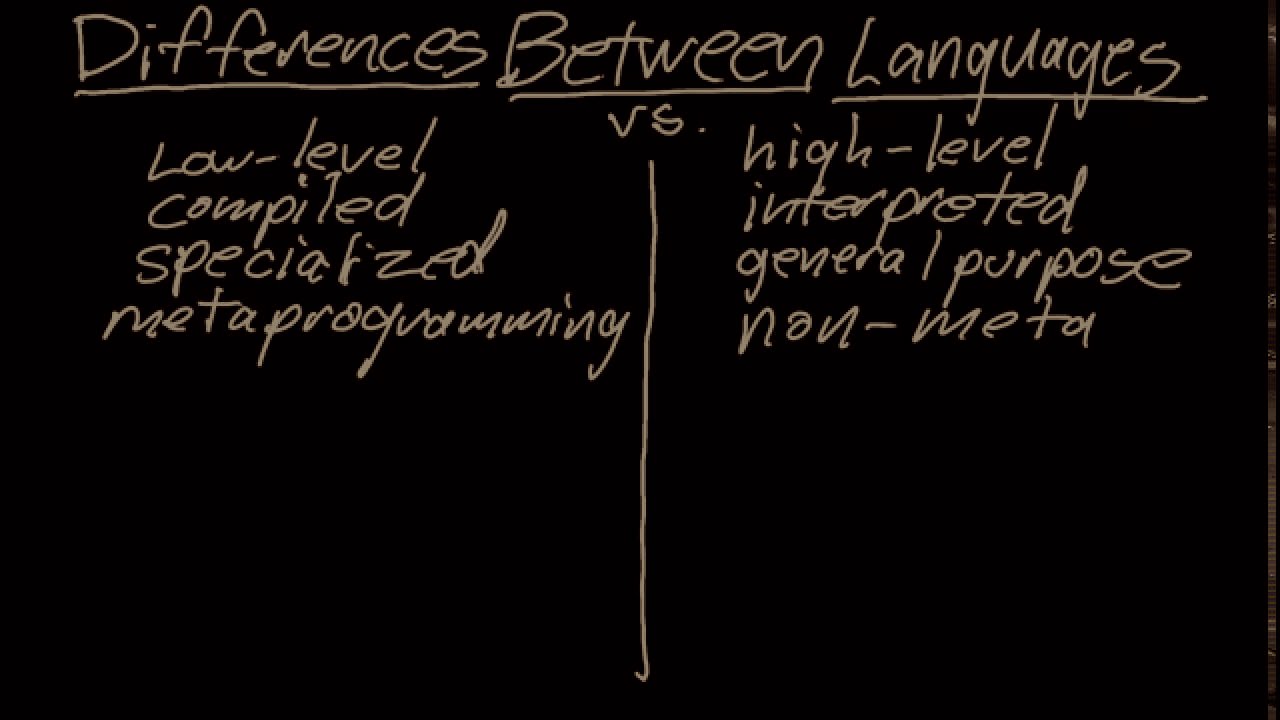 Differences Between Languages
vs.
Low-level
compiled
specialized
metaprogramming
high-level
interpreted
general purpose
non-meta